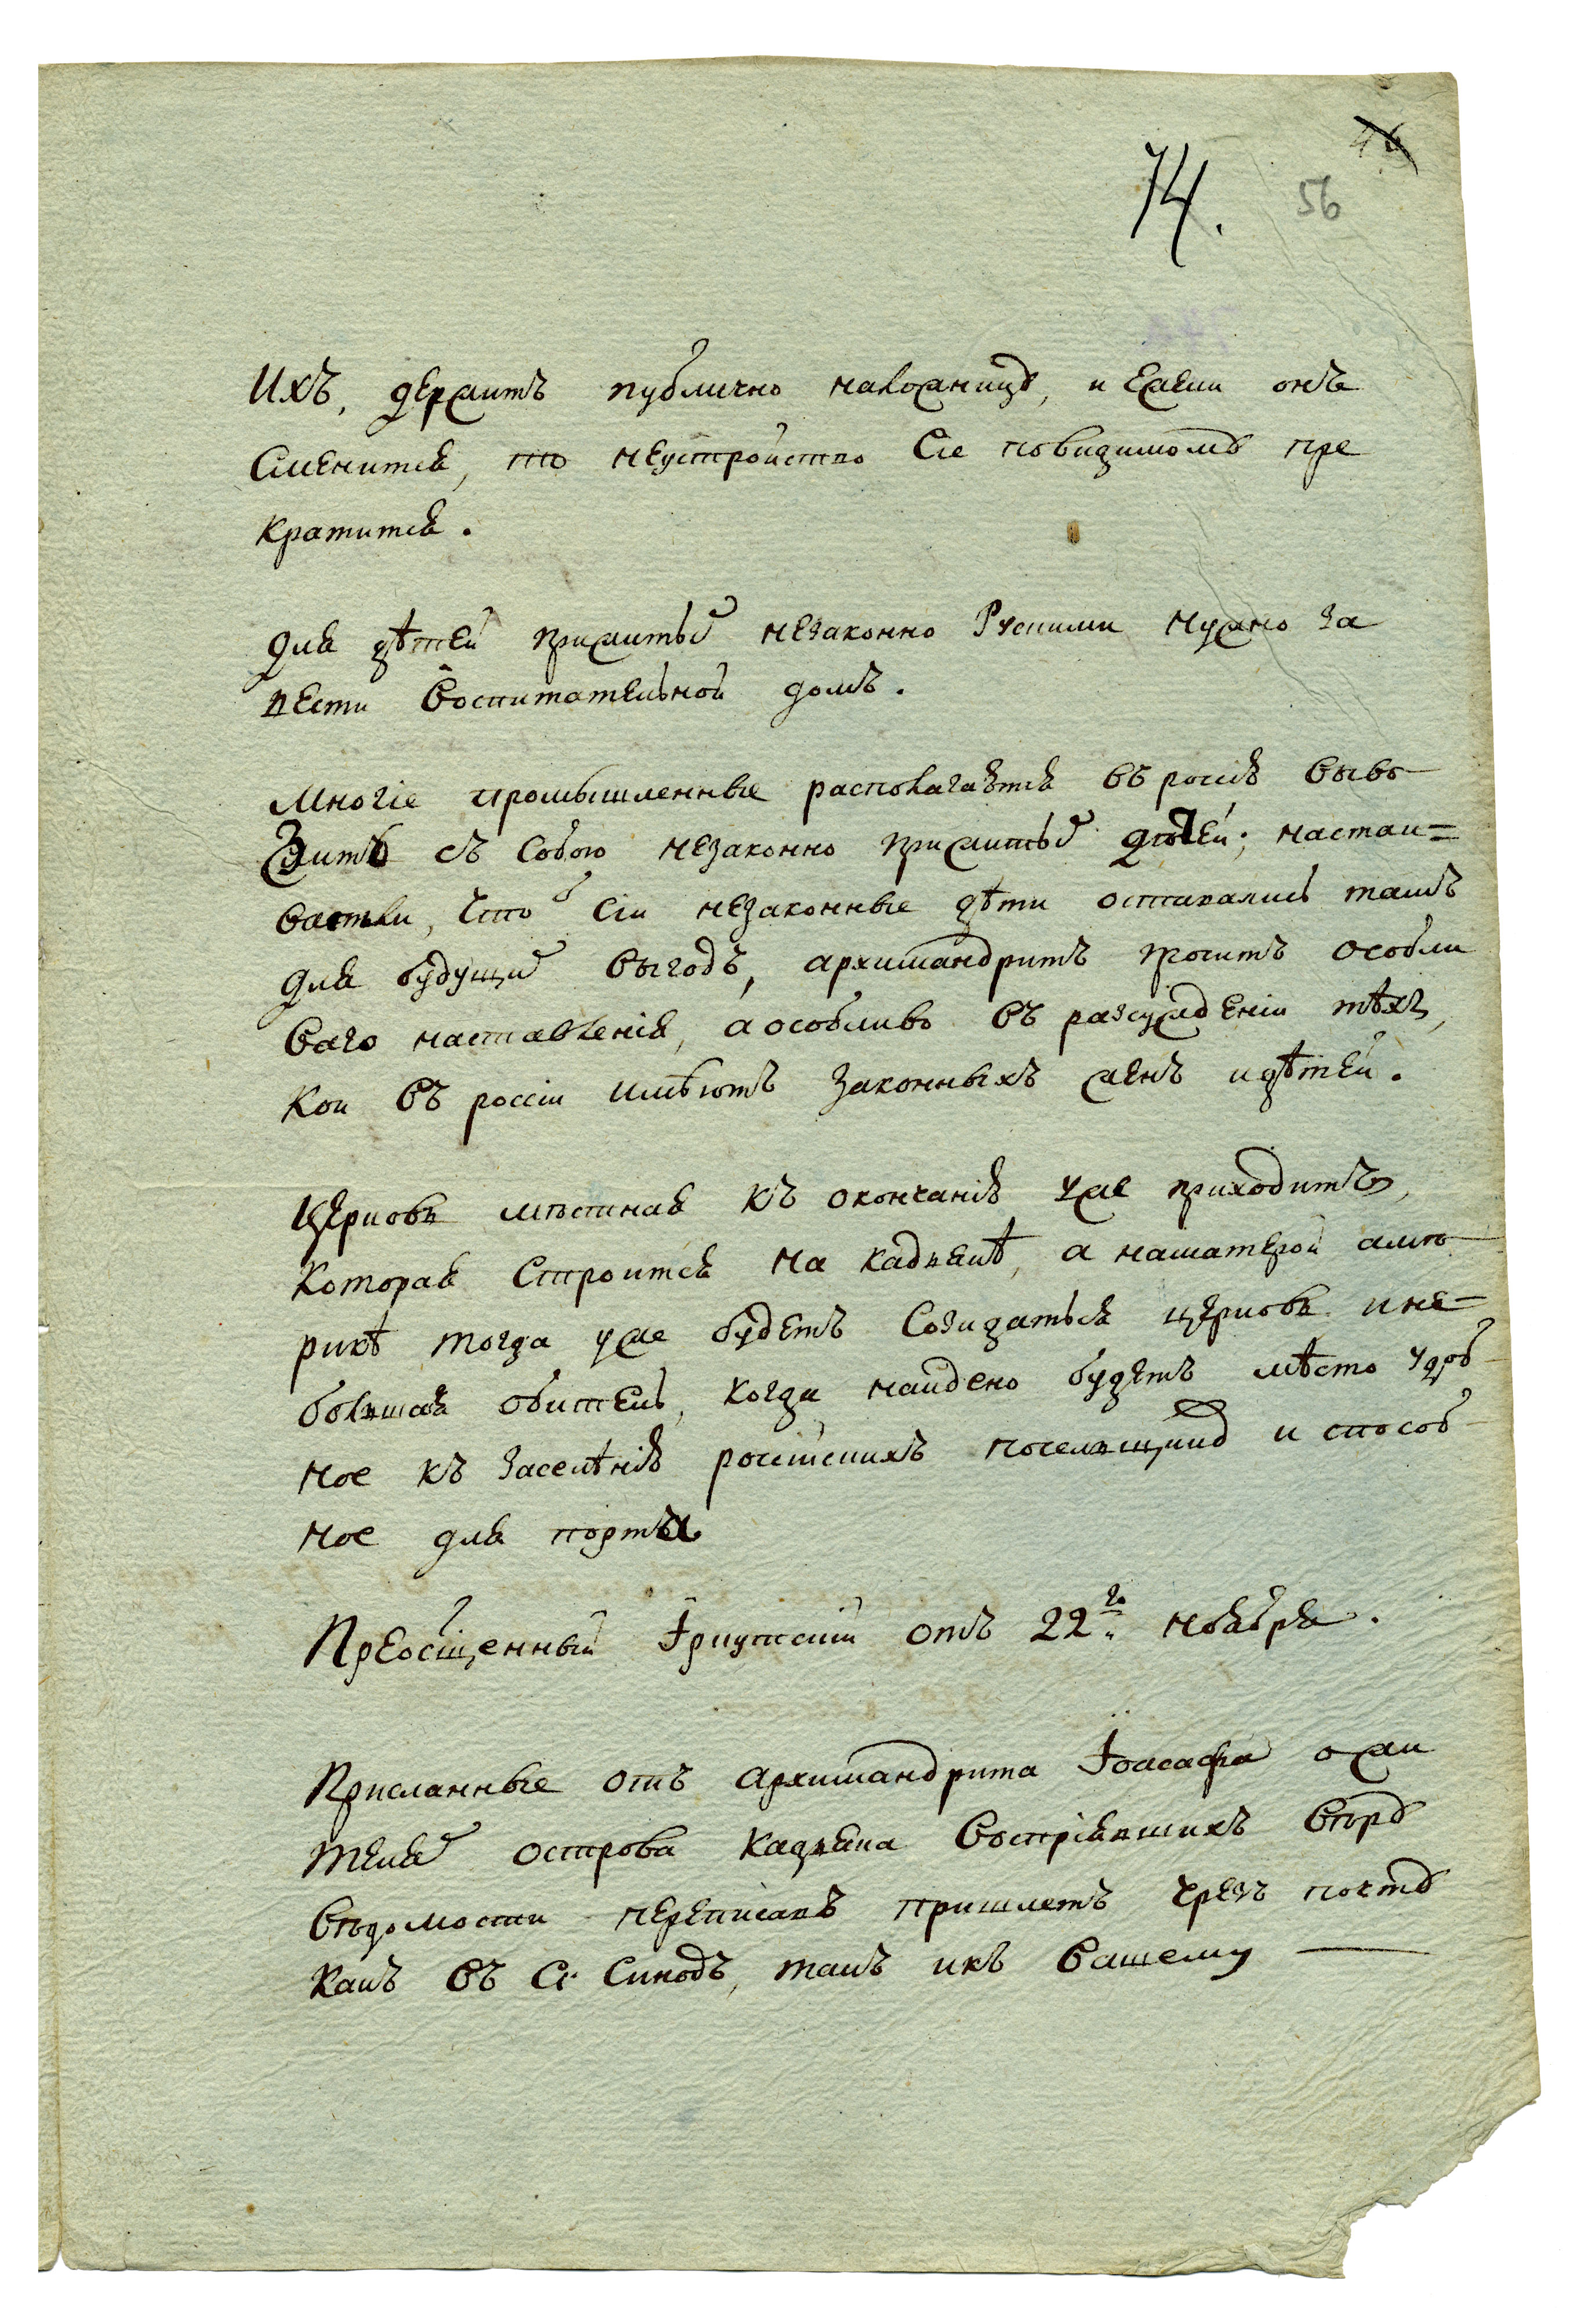 46
74.
56
Ихъ, держитъ публично наложницу, и ежели онъ
сменится, то неустройство сіе повидимому пре
кратится.
Для дѣтей прижитыхъ незаконно Рускими нужно за
вести воспитательной домъ.
Многіе промышленные располагаютъ въ россію выво
зить съ собою незаконно прижитыхъ дѣтей; настаи=
вать ли, чтобъ сіи незаконные дѣти оставались тамъ
для будущихъ выгодъ, архимандритъ проситъ особли
ваго наставленія, а особливо въ разсужденіи тѣхъ,
кои въ россіи имѣютъ законныхъ женъ и дѣтей.
Церковь мѣстная къ окончанію уже приходитъ,
которая строится на кадьякѣ, а на матерой аме
рикѣ тогда уже будетъ созидаться церковь и не=
большая обитель, когда найдено будетъ мѣсто удоб
ное къ заселѣнію россійскихъ посельщиковъ и способ
ное для порта
Преосщенный Іркутскій отъ 22го ноября.
Присланные отъ архимандрита Іоасафа о жи
теляхъ острова кадьяка воспріявшихъ вѣру
вѣдомости переписавъ пришлетъ чрезъ почту
какъ въ Св. Синодъ, такъ и къ вашему —